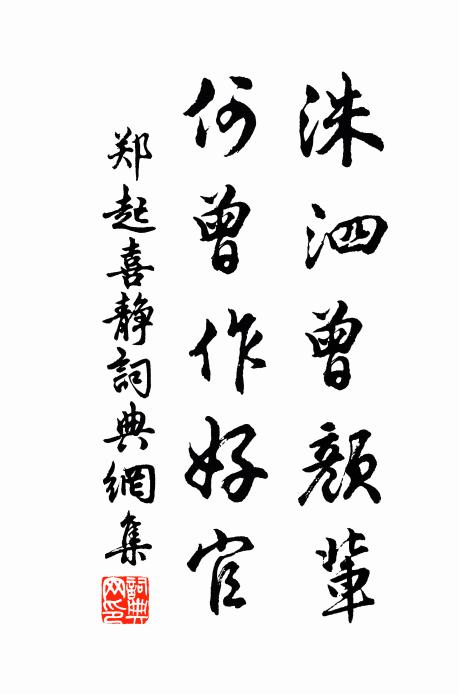 洙泗曾颜輩
何曾作好官
郑起喜静詞典網集
詞典网印